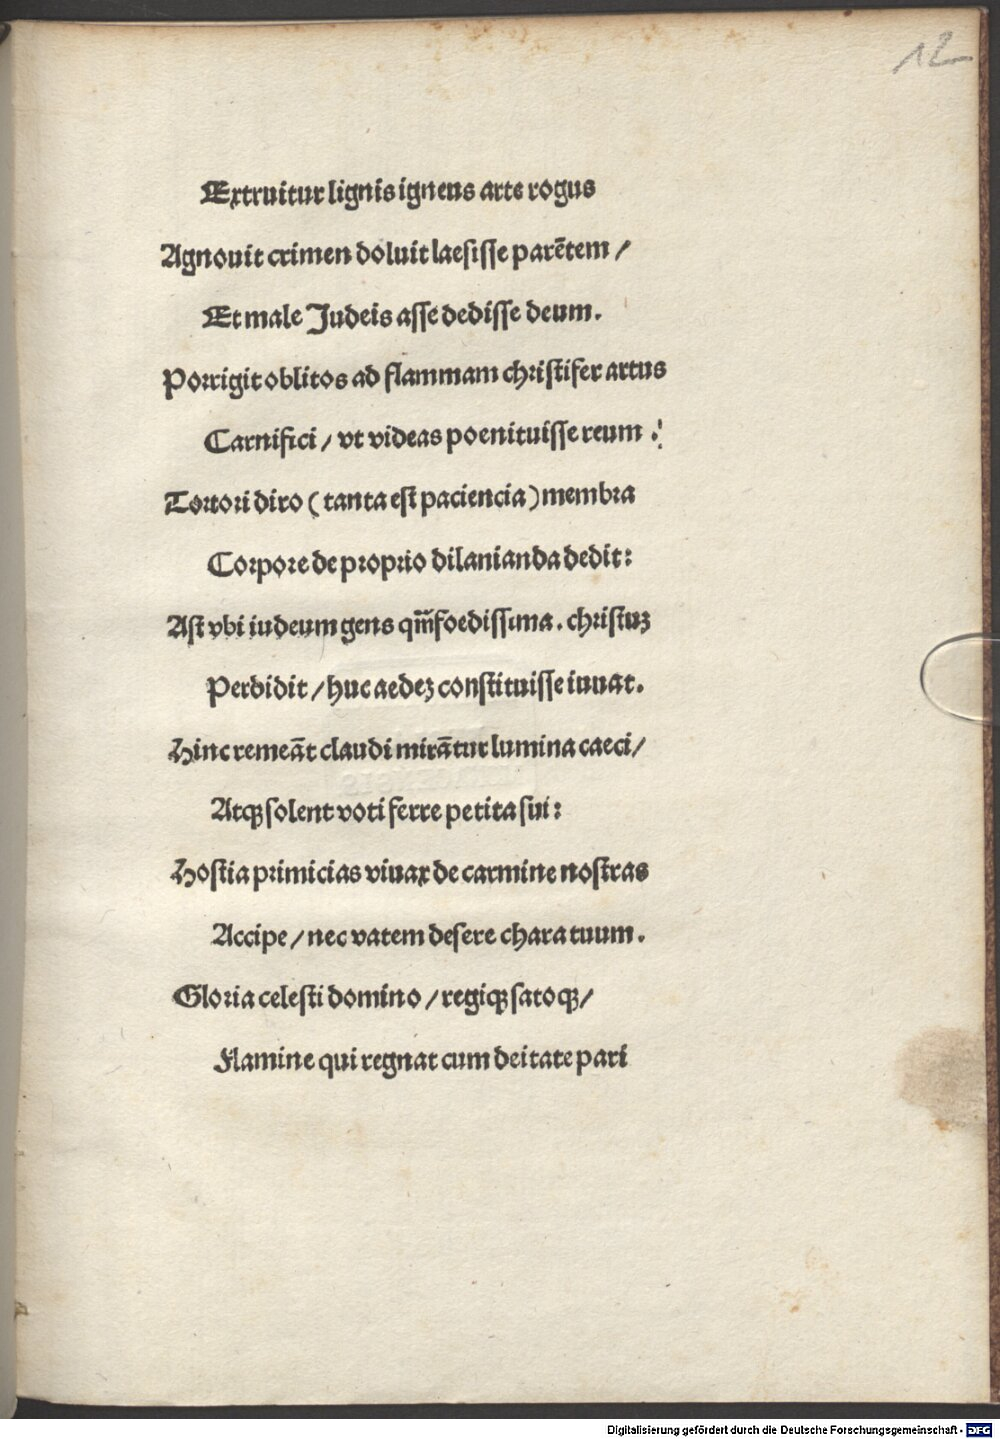 12
Extruitur lignis igneus arte rogus
Agnouit crimen doluit laesisse parētem /
Et male Judeis asse dedisse deum.
Porrigit oblitos ad flammam christifer artus
Carnifici / vt videas poenituisse reum .
Tortori diro ( tanta est paciencia ) membra
Corpore de proprio dilanianda dedit:
Ast vbi iudeum gens qm̄ foedissima. christuꝫ
Perdidit / huc aedeꝫ constituisse iuuat.
Hinc remeāt claudi mirātur lumina caeci /
Atqꝫ solent voti ferre petita sui:
Hostia primicias viuax de carmine nostras
Accipe / nec vatem desere chara tuum.
Gloria celesti domino / regiqꝫ satoqꝫ /
Flamine qui regnat cum deitate pari
Digitalisierung gefördert durch die Deutsche Forschungsgemeinschaft - DFG